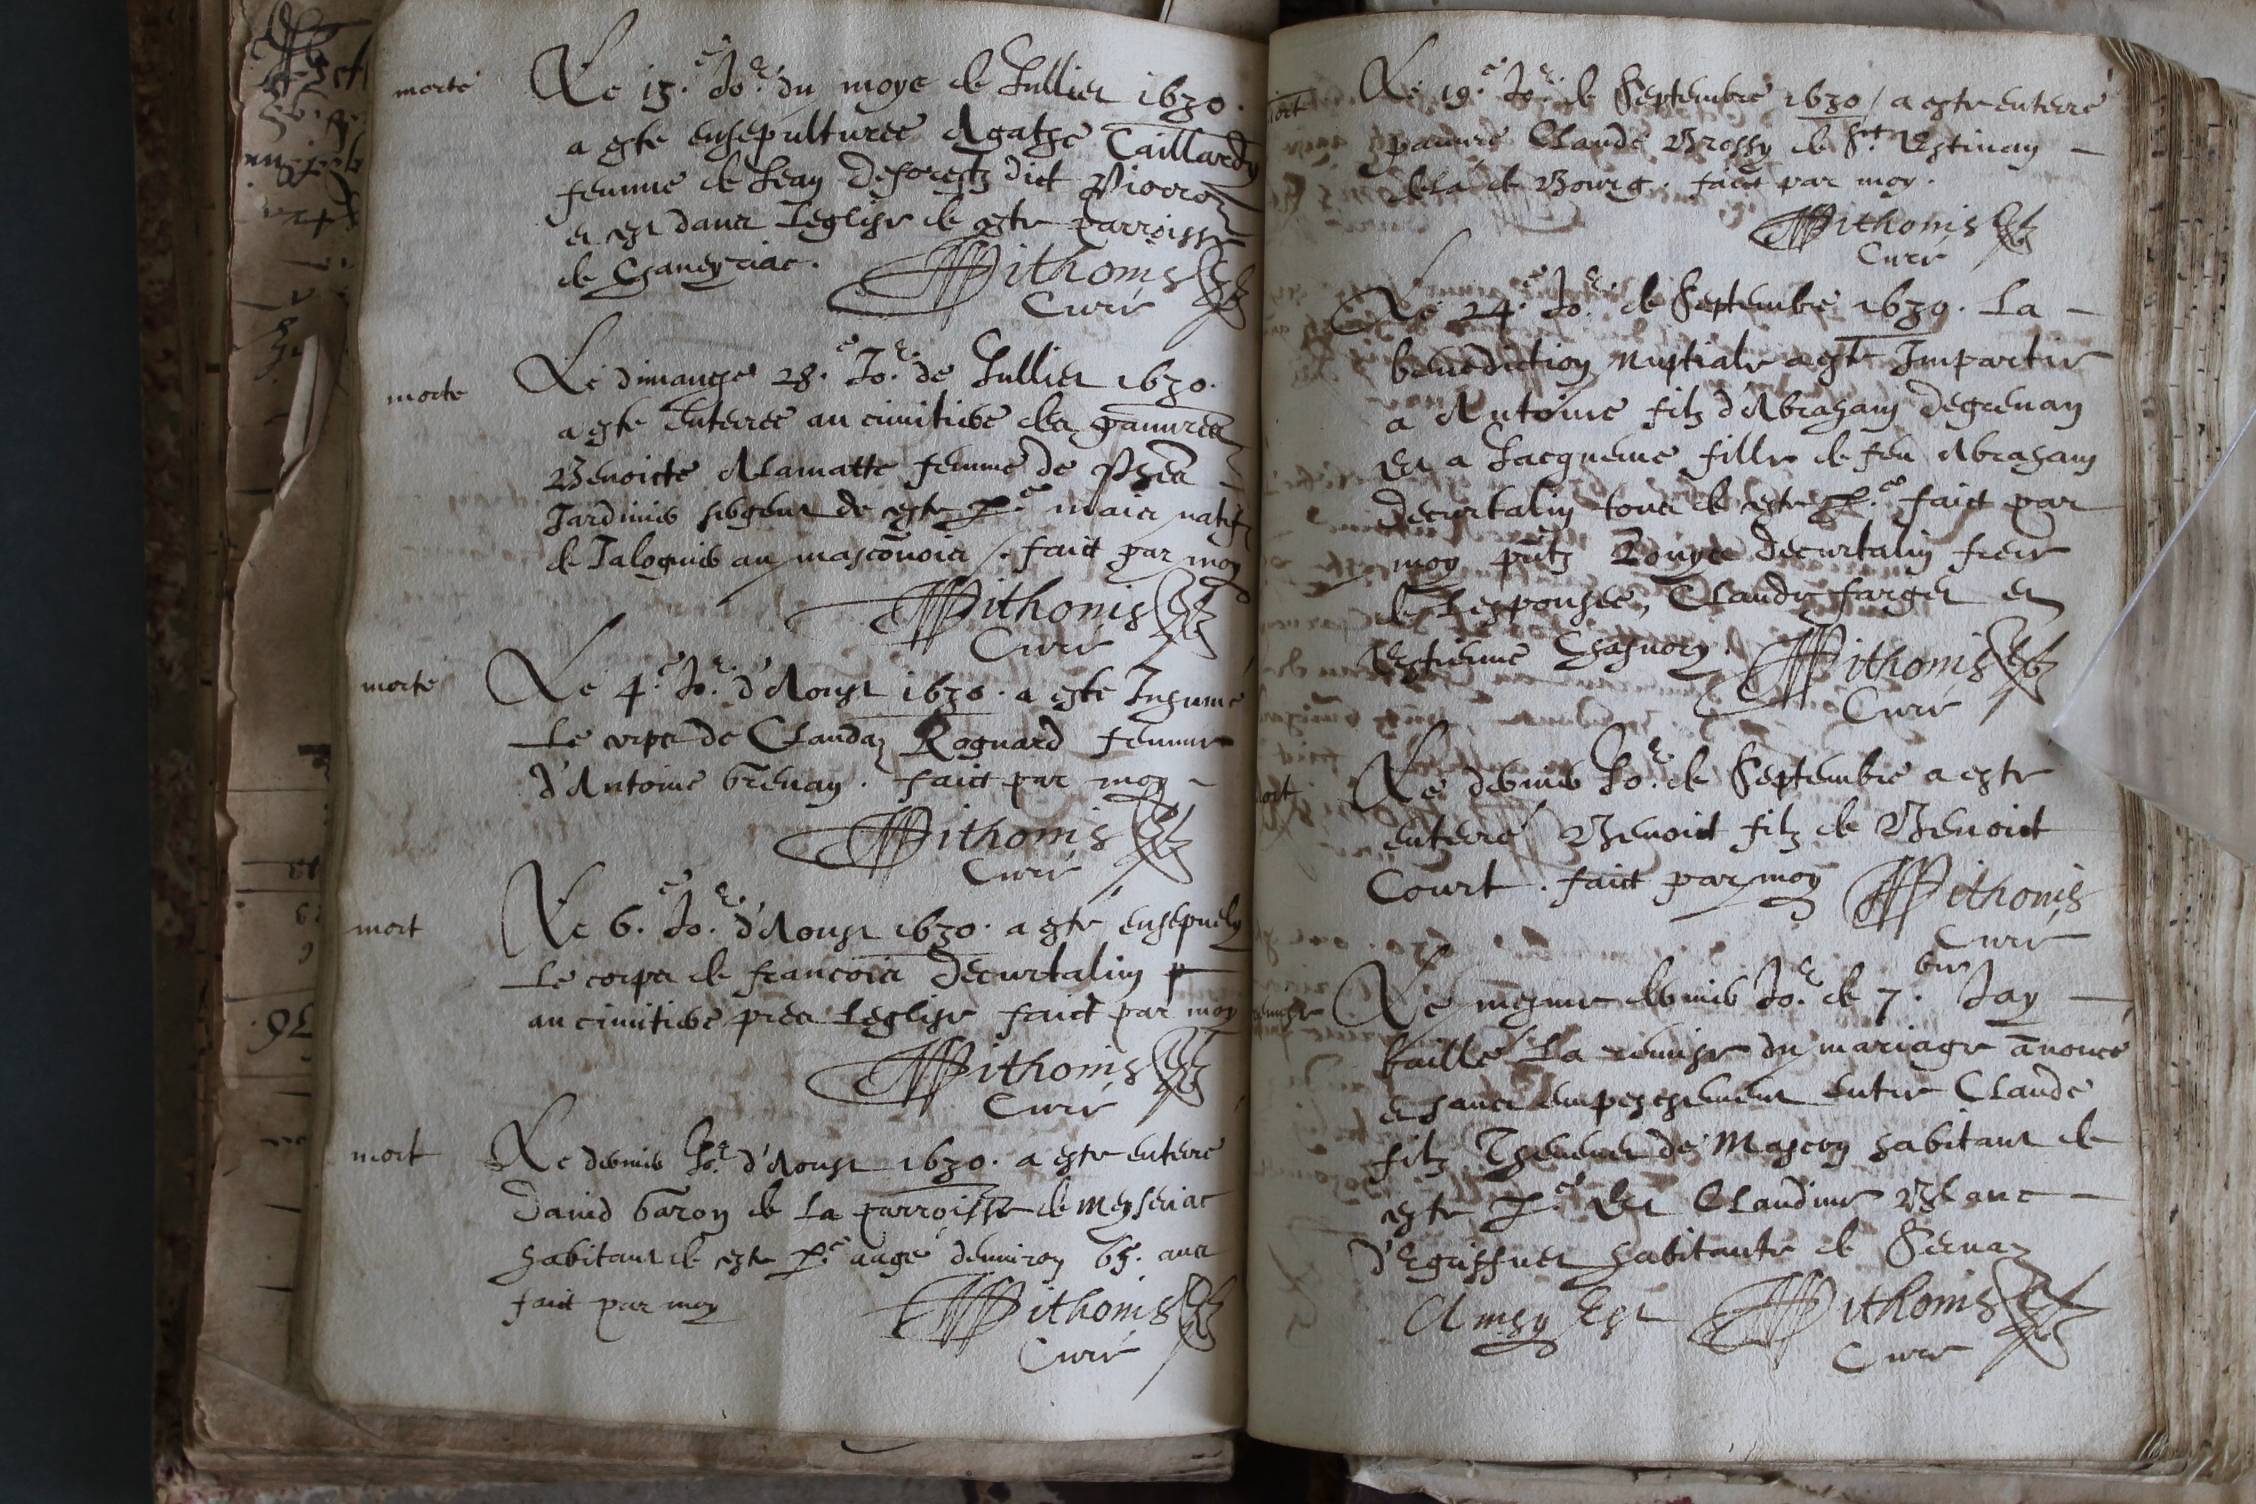 morte
Le 13.e Jo.r du moys de Jullier 1630.
a este ensepulturee Agathe Caillardz
femme de Jean deforestz dict Piorron
et est dans leglise de cste parroisse
de Chaneyriac.
Pithonis
Curé
morte
Le dimanche 28.e Jo.r de Jullier 1630.
a este enterree au cimitiere des pauvres
Benoicte Alamatte femme de
Jardinier de cste p.e mais natifz
de Jalognie au masconnois. faict par moy
Pithonis
Curé
morte
Le 4.e Jo.r d'Aoust 1630. a este Inhumé
Le corps de Claudaz Roguard femme
d'Antoine Brenay. faict par moy
Pithonis
Curé
mort
Le 6.e Jo.r d'Aoust 1630. a este ensepuely
Le corps de francois decurtalin
au cimitiere pres leglise faict par moy
Pithonis
Curé
mort
Le dernier Jo.r d'Aoust 1630. a este enterré
David baron de la parroisse de meyseriac
habitant de cste p.e aagé denviron 65. ans
faict par moy
Pithonis
Curé
mort
Le 19.e Jo.r de Septembre 1630 / a este enterré
pauvre Claude Brossy de St Estinay
dela de Bourg. faict par moy.
Pithonis
Curé
Le 24.e Jo.r de Septembre 1630. La
benediction nuptiale a este Impartie
a Antoine filz d'Abraham degrenay
Et a Jacqueme fille de feu Abraham
decurtalin tous de cste p.e faict par
moy pntz Louys decurtalin frere
de Lespousee, Claude farget et
Estienne Chasnory.
Pithonis
Curé
mort
Le dernier Jo.r de Septembre a este
enterré Benoict filz de Benoict
Court. faict par moy
Pithonis
Curé
remise
Le mesme dernier Jo.r de 7.bre Jay
baillé La remise du mariage anoncé
et sans empeschement entre Claude
filz Thevenet de Mascon habitant de
cste p.e Et Claudine Blanc
habitante de Sernaz
Ainsy Est Pithonis
Curé